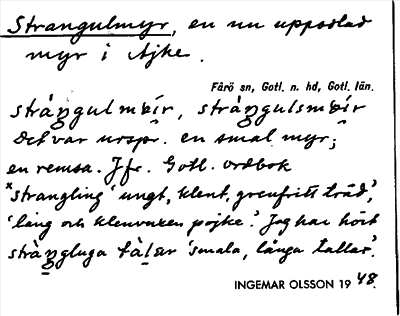 Strangulmyr, en nu uppodlad
myr i Ajke.
Fårö sn, Gotl. n. hd, Gotl. län.
strángulmœir, strángulsmœir
Det var urspr. en smal myr;
en remsa. Jfr. Gotl. ordbok
"strangling' ungt, klent, grenfritt träd,'
'lång och klenvuxen pojke'. Jag har hört
strángluga talar 'smala, långa tallar'.
INGEMAR OLSSON 1948.